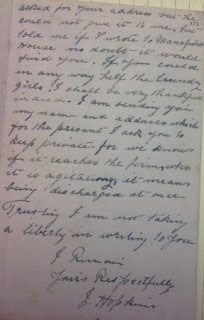 asked for your address but he
could not give it to me, but
told me if I wrote to Mansfield
House no doubt it would
find you. If you could
in any way help the laundry
girls I shall be very thankful
indeed. I am sending you
my name and address which
for the present I ask you to
keep private for we know
if it reaches the firm, who
it is agitating, it means
being discharged at once
Trusting I am not taking
a liberty in writing to you
I Remain
Yours Respectfully
J. Hopkins